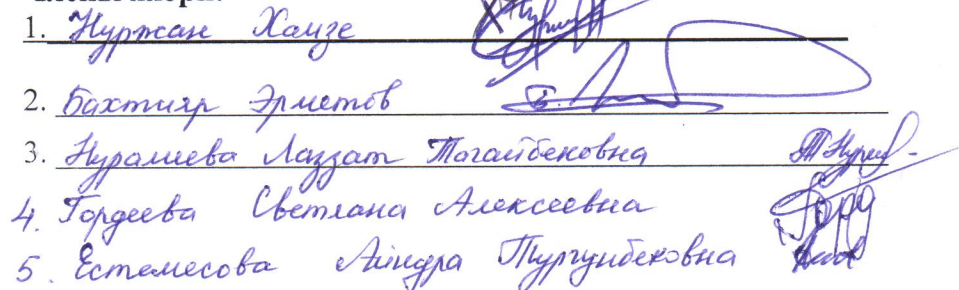 1. Нуржан Хамзе
2. Бахтияр Эрметов
3. Нуралиева Лаззат Тагайбековна
4. Гордеева Светлана Алексеевна
5. Естемесова Айндра Тургунбековна